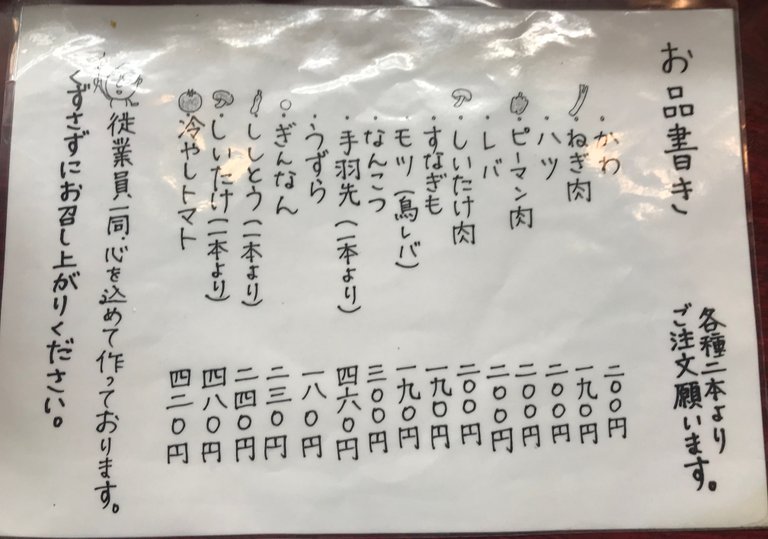 お品書き
各種二本より
ご注文願います。
・かわ 二〇〇円
・ねぎ肉 一九〇円
・ハツ 二〇〇円
・ピーマン肉 二〇〇円
・レバ 二〇〇円
・しいたけ肉 二〇〇円
・すなぎも 一九〇円
・モツ（鳥レバ） 一九〇円
・なんこつ 三〇〇円
・手羽先（一本より） 四六〇円
・うずら 一八〇円
・ぎんなん 二三〇円
・ししとう（一本より） 二四〇円
・しいたけ（一本より） 四八〇円
・冷やしトマト 四二〇円
従業員一同、心を込めて作っております。
くずさずにお召し上がりください。